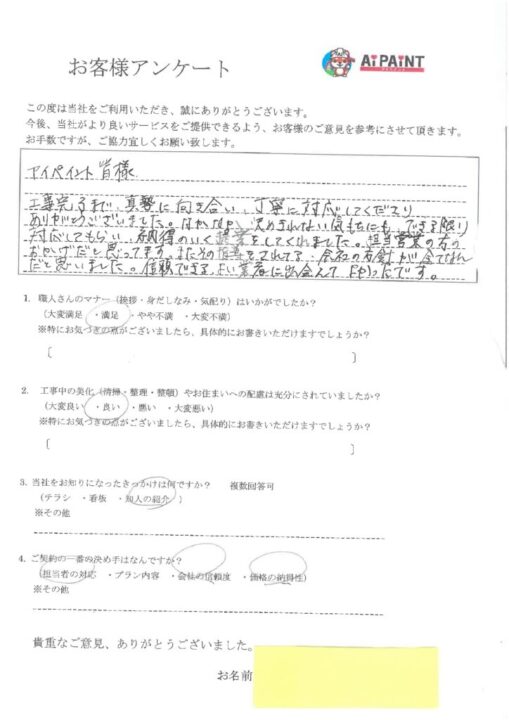 お客様アンケート
AiPAiNT
この度は当社をご利用いただき、誠にありがとうございます。
今後、当社がより良いサービスをご提供できるよう、お客様のご意見を参考にさせて頂きます。
お手数ですが、ご協力宜しくお願い致します。
アイペイント皆様
工事完了まで、真摯に向き合い、丁寧に対応してくださり
ありがとうございました。なかなか決めきれない気もちにも、できる限り
対応してもらい、納得のいく提案をしてくれました。担当営業の方の
おかげだと思ってます。またその をされてる、会社の方針が全てなん
だと思いました。信頼できる、良い業者に出会えて良かったです。
1. 職人さんのマナー(挨拶・身だしなみ・気配り)はいかがでしたか?
(大変満足 ・満足 ・やや不満 ・大変不満)
※特にお気づきの点がございましたら、具体的にお書きいただけますでしょうか?
[ ]
2. 工事中の美化(清掃・整理・整頓)やお住まいへの配慮は充分にされていましたか?
(大変良い ・良い ・悪い ・大変悪い)
※特にお気づきの点がございましたら、具体的にお書きいただけますでしょうか?
[ ]
3. 当社をお知りになったきっかけは何ですか? 複数回答可
(チラシ ・看板 ・知人の紹介 )
※その他
4. ご契約の一番の決め手はなんですか?
(担当者の対応 ・プラン内容 ・会社の信頼度 ・価格の納得性)
※その他
貴重なご意見、ありがとうございました。
お名前